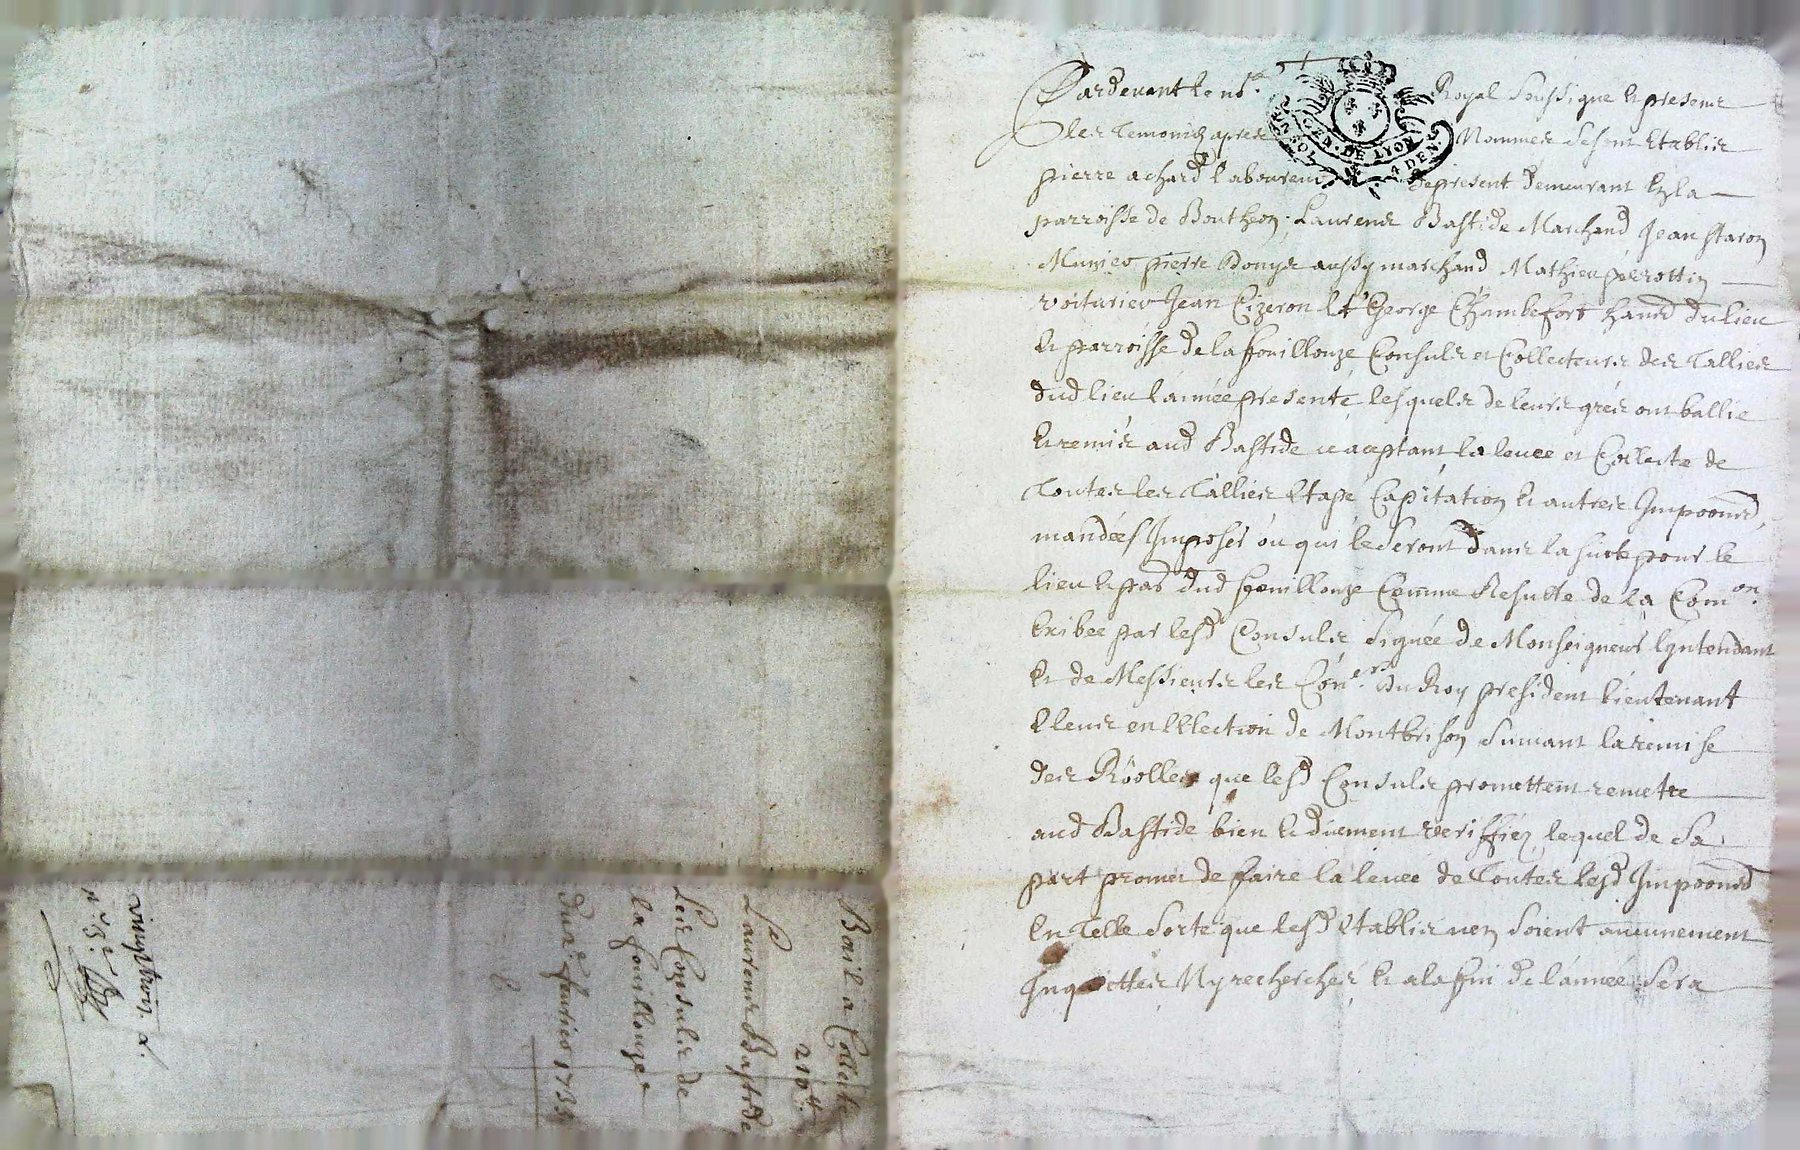 Pardevant le no.re Royal soussigné et presens
les temoins apres Nommes se sont Etablis
pierre achard laboureur apresent demeurant En la
parroisse de Bontheon, Laurens Bastide Marchand Jean staron
Munier pierre Bonys aussy marchand Mathieu perrottin
voiturier Jean Cizeron Et George Chambefort du lieu
Et parroisse de la fouillouze Consuls et Collecteurs des tallies
dud lieu lánnée presente lesquels de leurs grés ont ballié
Et remis aud Bastide ce aceptant la levee et Collecte de
toutes les tallies Etape Capitation Et autres Impoons
mandées Imposés ou qui le seront dans la suite pour le
lieu Et pas dud fouillouze Comme Resulte de la Com.on
Exibee par lesd Consuls signée de Monseigneur lyntendant
Et de Messieurs les Con.rs du Roy president lieutenant
Eleus en lElection de Montbrison suivant la remise
des Rôolles que lesd Consuls promettent remetre
aud Bastide bien Et duement veriffiéz lequel de sa
part promet de faire la levée de toutes lesd Impoons
En telle sorte que lesd Etablis nen soient aucunement
Inquiettes Ny recherchés Et a la fin de lánnée sera
Bail a Collecte
210 tt.
Laurens Bastide
Les Consuls de
la fouillouze
du janvier 173
vingt trois d.
GEN. DE LYON
UN SOL 4 DEN.